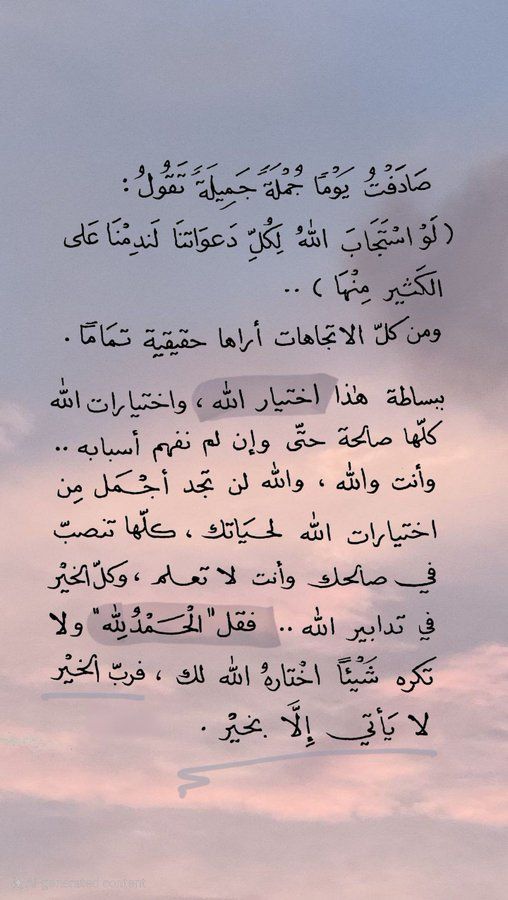 صَادَفْتُ يَوْمًا جُمْلَةً جَمِيلَةً تَقُولُ :
( لَوْ اسْتَجَابَ اللهُ لِكُلِّ دَعوَاتنَا لَندِمْنَا عَلى
الكَثِير مِنْهَا ) ..
ومن كلّ الاتجاهات أراها حقيقية تمَامًا .
ببساطة هٰذا اختيار الله ، واختيارات الله
كلّها صالحة حتّى وإن لم نفهم أسبابه ..
وأنت والله ، والله لن تجد أجْمَل مِن
اختيارات الله لحيَاتك ، كلّها تنصبّ
في صالحك وأنت لا تعلم ، وكلّ الخيْر
في تدابير الله .. فقل "الْحَمْدُلِله" ولا
تكره شَيْئًا اخْتارهُ الله لك ، فربّ الخيْر
لا يَأتي إلَّا بخيْر .
AI-generated content